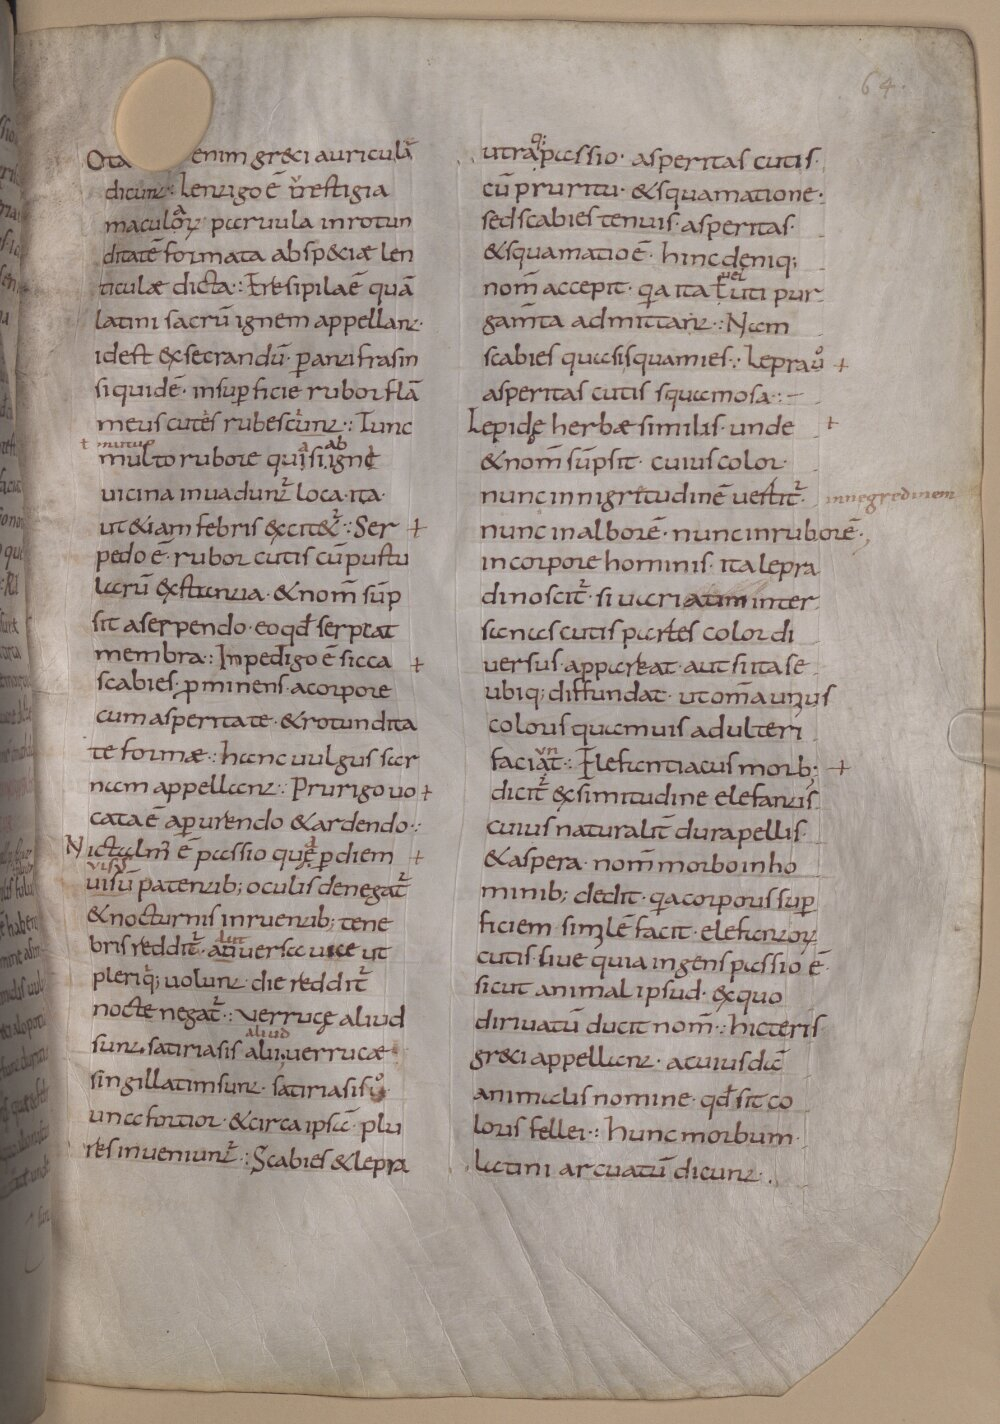 64.
Ota enim greci auriculā
dicunt· Lentigo ē ūestigia
maculoꝝ paruula in rotun
ditatē formata ab sp&ciæ len
ticulæ dicta: Eresipila ē quā
latini sacrū ignem appellant·
id est exsecrandū· ꝑ antifrasin
siquidē· insuꝑficie rubor flā
meus cutes rubescunt: Tunc
mutuo
multo rubore quasi ab igne
uicina inuadunt̄ loca· ita·
ut &iam febris excitet̄: Ser +
pedo ē· rubor cutis cū pustu
larū exstantia· & nom̄ sūp
sit a serpendo· eo qđ serpeat
membra: Inpedigo ē sicca +
scabies· ꝓminens· a corpore
cum asperitate· & rotundita
te formæ: hanc uulgus sar
nam appellant: Prurigo uo +
cata ē a ꝑurendo & ardendo:
Nictalm̄ ē passio quę ꝑ diem +
visus
uisū patentib; oculis denegat̄
& nocturnis inruentib; tene
bris reddit̄· aut uersa uice ut
pleriq; uolunt· die reddit̄
nocte negat̄: uerrucę aliud
aliud
sunt· satiriasis alii; uerrucæ
singillatim sunt· satiriasis ū
una fortior· & circa ipsā· plu
res inueniunt̄: Scabies & lepra
utraq; passio· asperitas cutis·
cū pruritu· & squamatione·
sed scabies tenuis· asperitas·
& squamatio ē· hinc deniq;
uel
nom̄ accepit· qa ita ł uti pur
gam̄ta admittant: Nam
scabies quasi squamies: Lepra ū +
asperitas cutis squamosa:
Lepidę herbæ similis· unde +
& nom̄ sūpsit· cuius color·
nunc in nigritudinē uestit̄· innegredinem
nunc in alborē· nunc in ruborē·
in corpore hominis· ita lepra
dinoscit̄· si uariatim inter
sanas cutis partes color di
uersus appareat· aut si ita se
ubiq; diffundat· ut om̄a unius
coloris quamuis adulteri
faciat: Elefantiacus morb; +
dicit̄ exsimitudine elefantis·
cuius naturalit̄ dura pellis·
& aspera· nom̄ morbo in ho
minib; dedit· qa corporis suꝑ
ficiem· simlē facit· elefantoꝝ
cutis· siue quia ingens passio ē·
sicut animal ipsud· ex quo
diriuatū ducit nom̄: hicteris
greci appellant· a cuiusdā
animalis nomine· qđ sit co
loris fellei: hunc morbum
latini arcuatū dicunt·